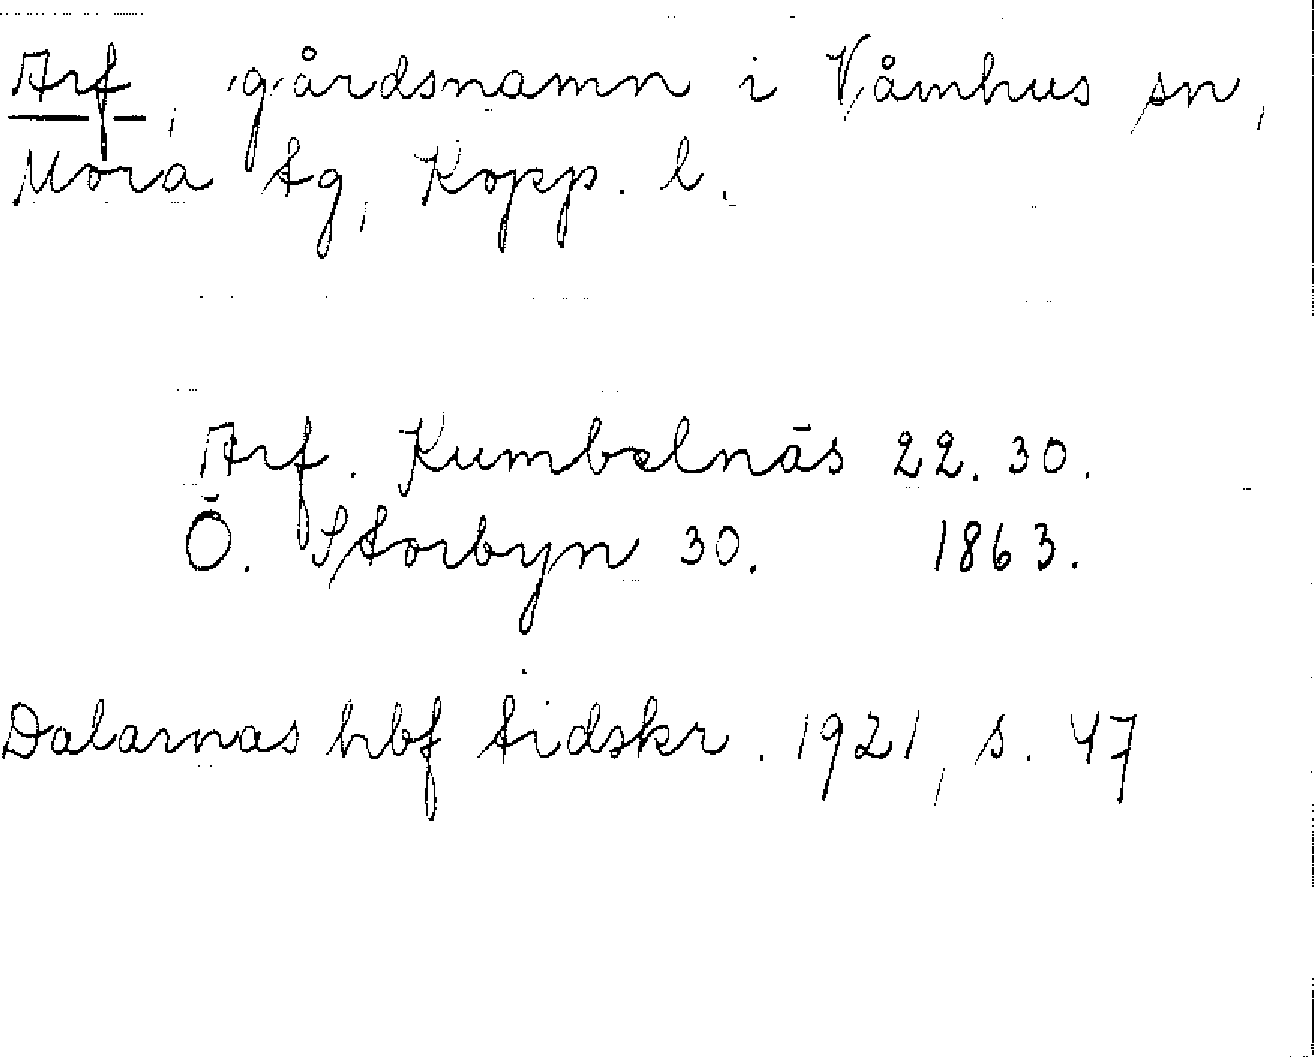 Arf, gårdsnamn i Våmhus sn,
Mora tg, Kopp. l.
Arf. Kumbelnäs 22. 30.
Ö. Storbyn 30. 1863.
Dalarnas hbf tidskr. 1921, s. 47